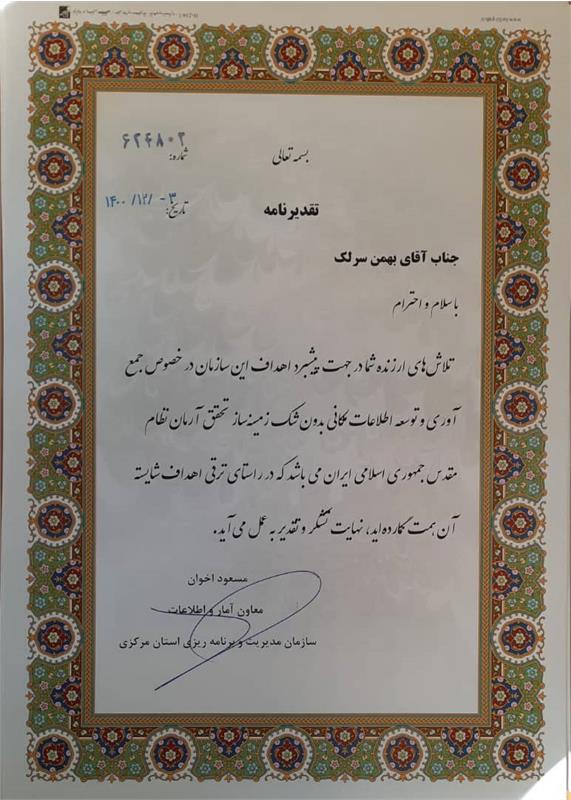 بسمه تعالی
شماره: ۶۲۴۸۰۲
تاریخ: ۱۴۰۰/۱۲/۰۳
تقدیرنامه
جناب آقای بهمن سرلک
با سلام و احترام
تلاش‌های ارزنده شما در جهت پیشبرد اهداف این سازمان در خصوص جمع
آوری و توسعه اطلاعات مکانی بدون شک زمینه‌ساز تحقق آرمان نظام
مقدس جمهوری اسلامی ایران می باشد که در راستای ترقی اهداف شایسته
آن همت گمارده‌اید، نهایت تشکر و تقدیر به عمل می آید.
مسعود اخوان
معاون آمار و اطلاعات
سازمان مدیریت و برنامه ریزی استان مرکزی